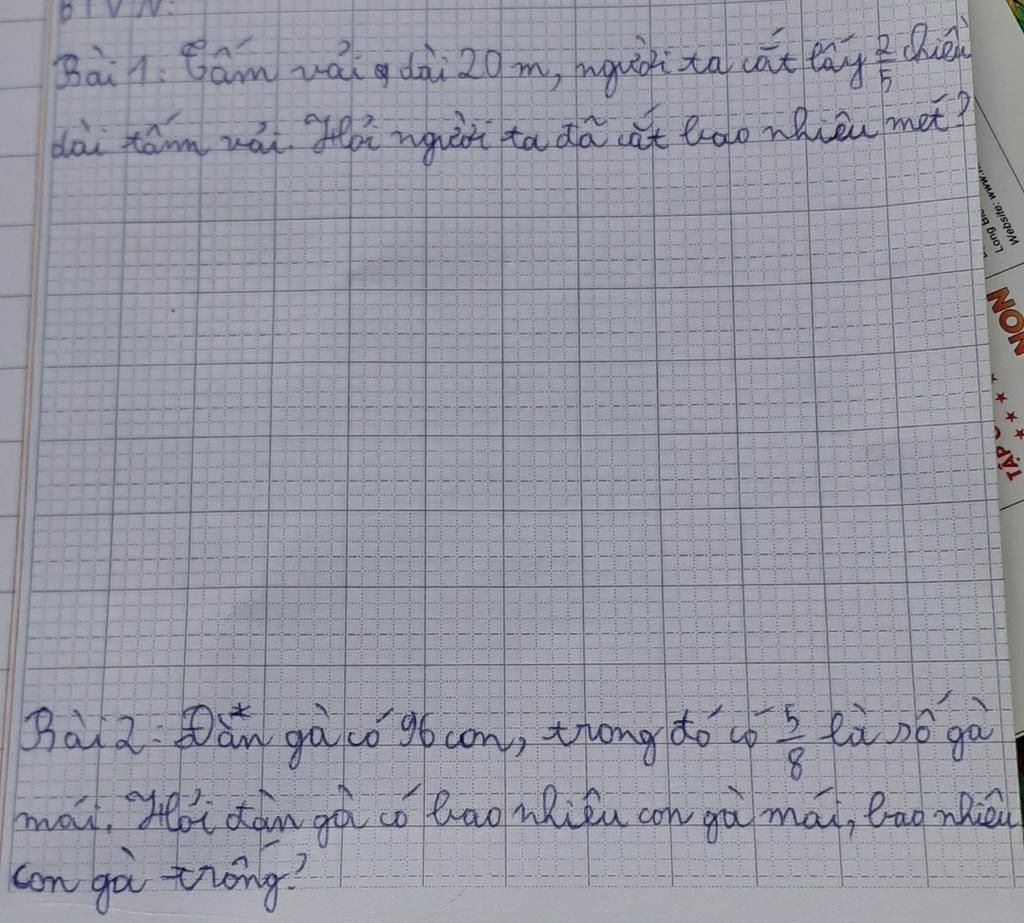 BTVN:
Bài 1: Tấm vải dài 20 m, người ta cắt lấy 2/5 chiều
dài tấm vải. Hỏi người ta đã cắt bao nhiêu mét?
Bài 2: Đàn gà có 96 con, trong đó có 5/8 là số gà
mái. Hỏi đàn gà có bao nhiêu con gà mái, bao nhiêu
con gà trống?
Website: www.
NON
TẬP